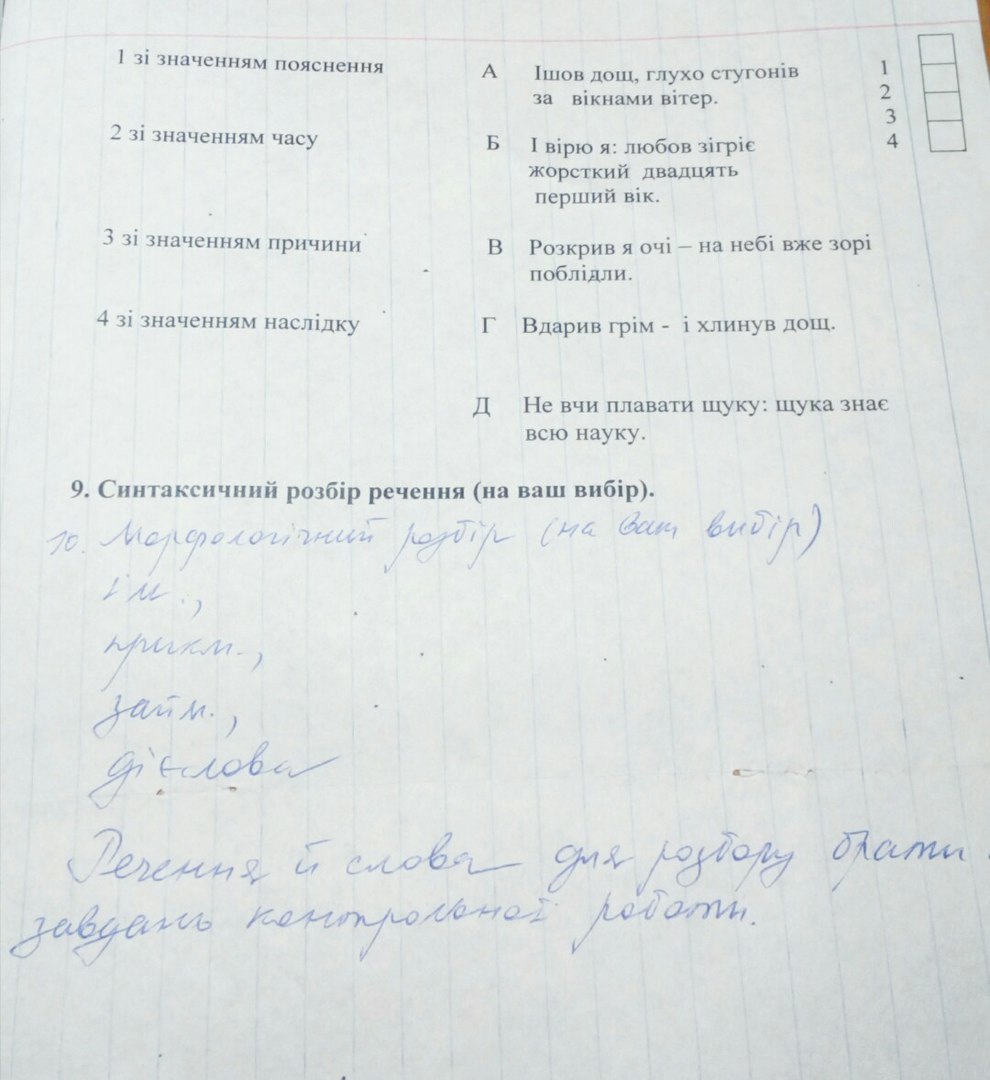 1 зі значенням пояснення
2 зі значенням часу
3 зі значенням причини
4 зі значенням наслідку
А Ішов дощ, глухо стугонів
за вікнами вітер.
Б І вірю я: любов зігріє
жорсткий двадцять
перший вік.
В Розкрив я очі – на небі вже зорі
поблідли.
Г Вдарив грім - і хлинув дощ.
Д Не вчи плавати щуку: щука знає
всю науку.
1
2
3
4
9. Синтаксичний розбір речення (на ваш вибір).
10. Морфологічний розбір (на Ваш вибір)
ім.,
прикм.,
займ.,
дієслова
Речення й слова для розбору брати
завдань контрольної роботи.